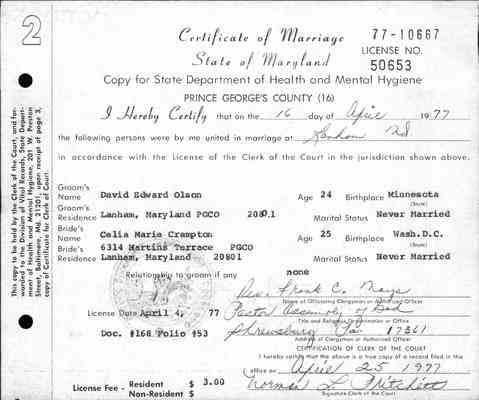 2
Certificate of Marriage 77-10667
State of Maryland LICENSE NO.
50653
Copy for State Department of Health and Mental Hygiene
PRINCE GEORGE'S COUNTY (16)
I Hereby Certify that on the 16 day of April 1977
the following persons were by me united in marriage at Lanham Md.
in accordance with the License of the Clerk of the Court in the jurisdiction shown above.
Groom's
Name David Edward Olson Age 24 Birthplace Minnesota
(State)
Groom's
Residence Lanham, Maryland PGCO 20801 Marital Status Never Married
Bride's
Name Celia Marie Crampton Age 25 Birthplace Wash.D.C.
(State)
Bride's 6314 Martins Terrace PGCO
Residence Lanham, Maryland 20801 Marital Status Never Married
Relationship to groom if any none
Rev. Frank C. Mays
Name of Officiating Clergyman or Authorized Officer
License Date April 4, 77 Pastor Assembly of God
Title and Religious Denomination or Office
Doc. #168 Folio #53 Shrewsbury Pa 17361
Address of Clergyman or Authorized Officer
CERTIFICATION OF CLERK OF THE COURT
I hereby certify that the above is a true copy of a record filed in this
office on April 25 1977
License Fee - Resident $ 3.00 Norman L. Pritchett
Non-Resident $ Signature-Clerk of the Court
This copy to be held by the Clerk of the Court, and for-
warded to the Division of Vital Records, State Depart-
ment of Health and Mental Hygiene, 201 W. Preston
Street, Baltimore, Md. 21201, upon receipt of page 3,
copy of Certificate for Clerk of Court.